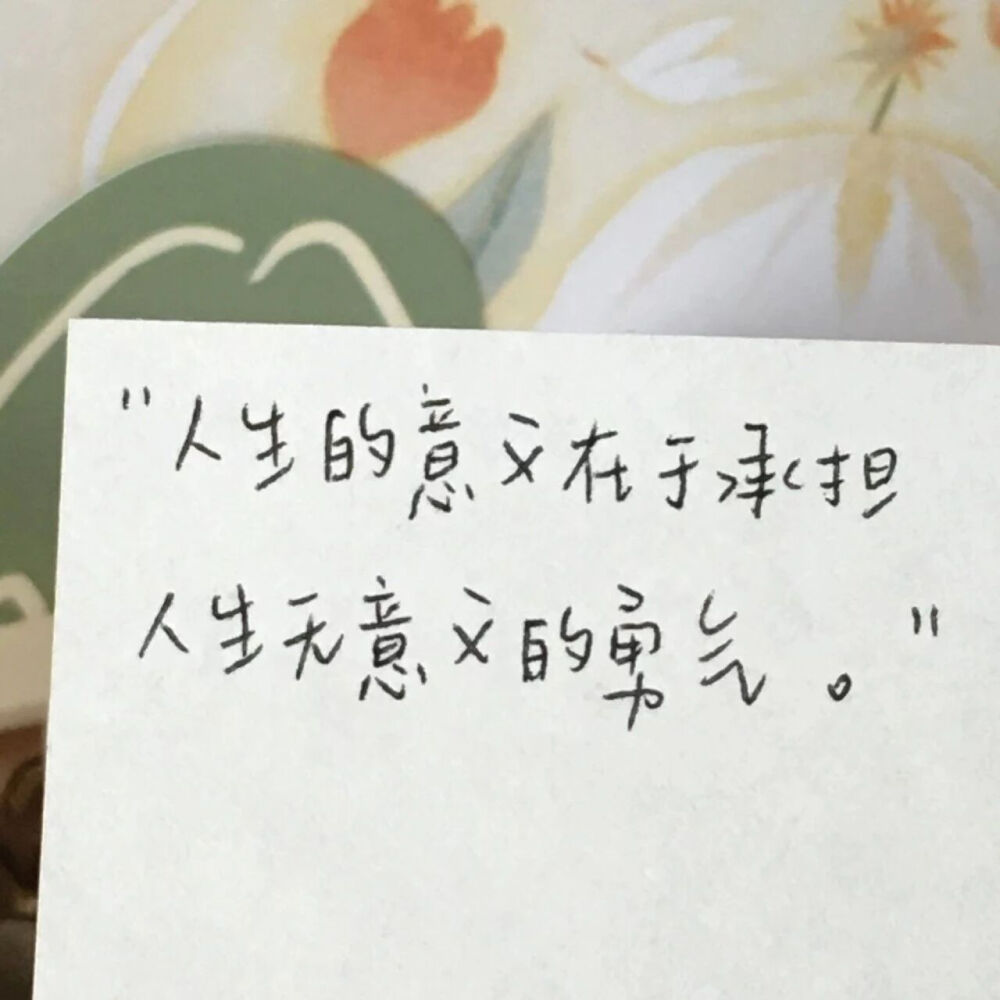 "人生的意义在于承担
人生无意义的勇气。"